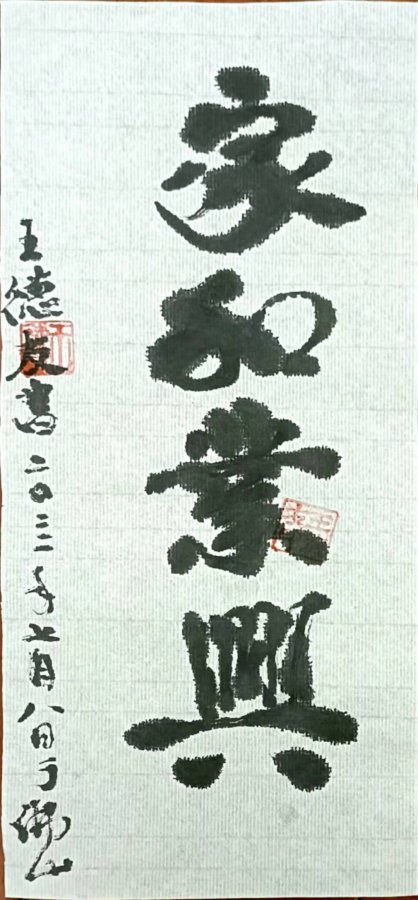 家和業興
王德友書二〇二二年七月八日于佛山